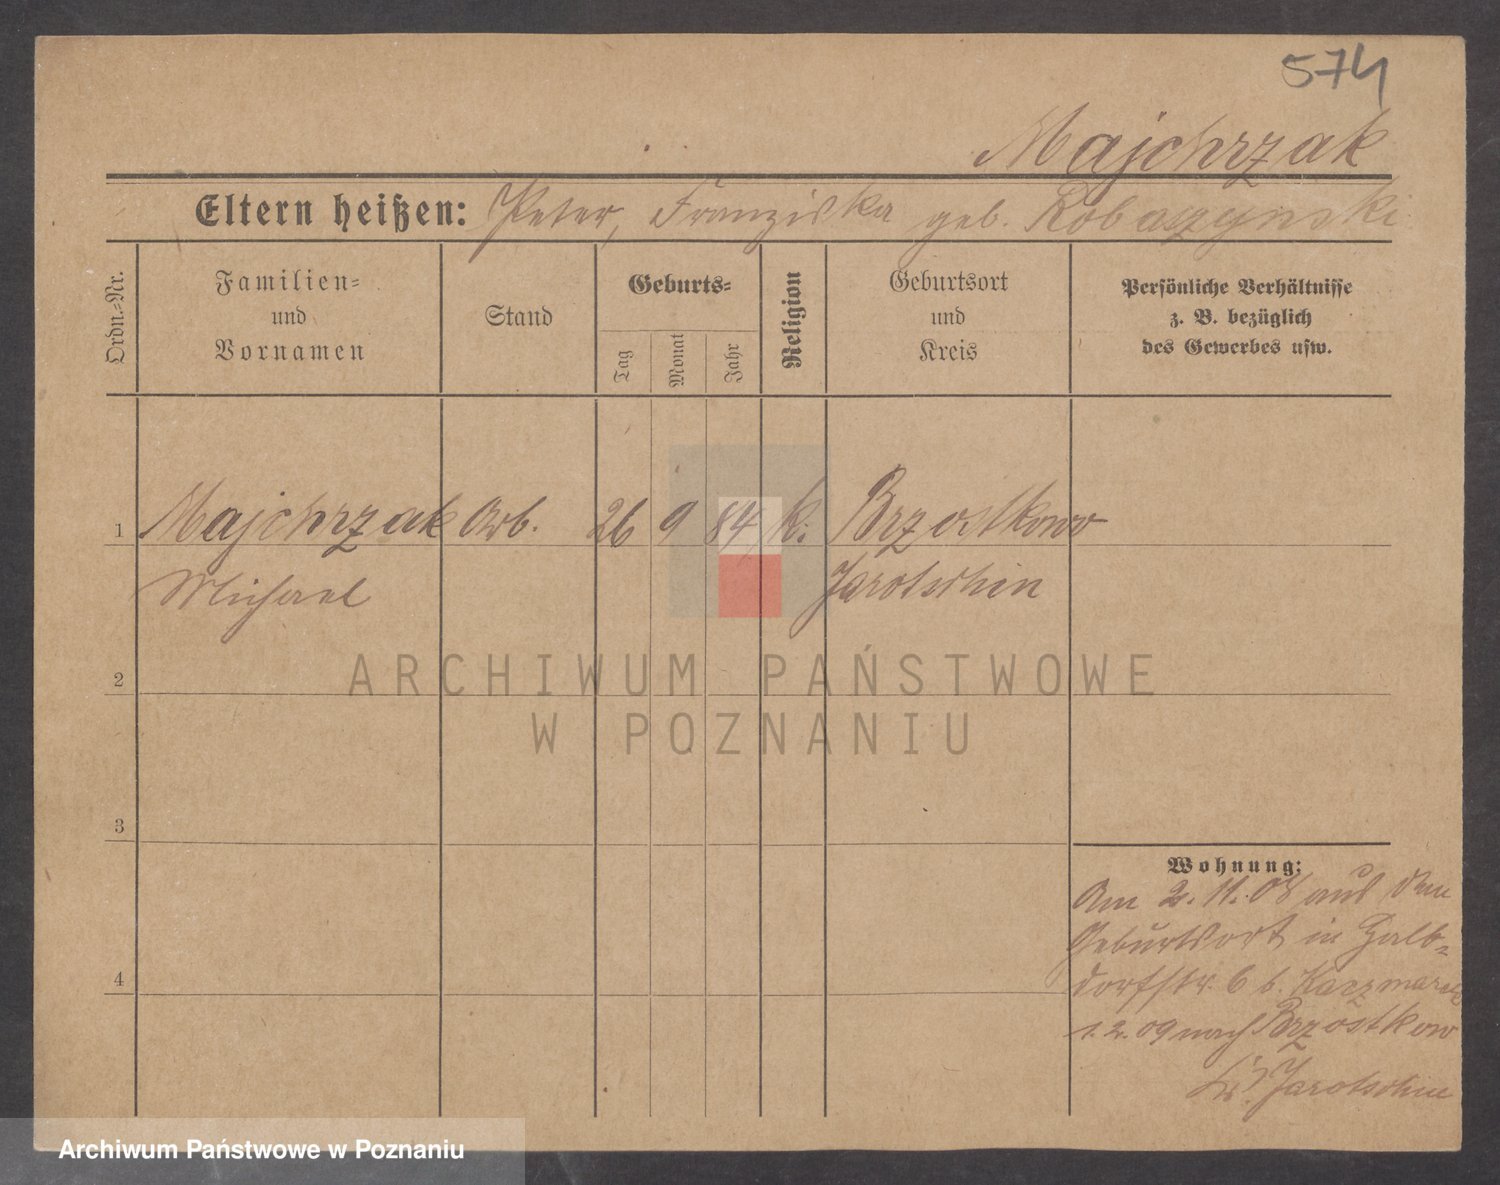 574
Majchrzak
Eltern heißen: Peter, Franziska geb. Robaszynski
Ordn.=Nr.
Familien=
und
Vornamen
Stand
Geburts=
Tag
Monat
Jahr
Religion
Geburtsort
und
Kreis
Persönliche Verhältnisse
z. B. bezüglich
des Gewerbes usw.
1 Majchrzak Arb. 26 9 84 k. Brzostkowo
Michael Jarotschin
2
3
4
Wohnung:
Am 2. 11. 08 aus dem
Geburtsort in Halb=
dorfstr. 6 b. Kaczmarek
1. 2. 09 nach Brzostkow
Kr. Jarotschin
ARCHIWUM PAŃSTWOWE
W POZNANIU
Archiwum Państwowe w Poznaniu